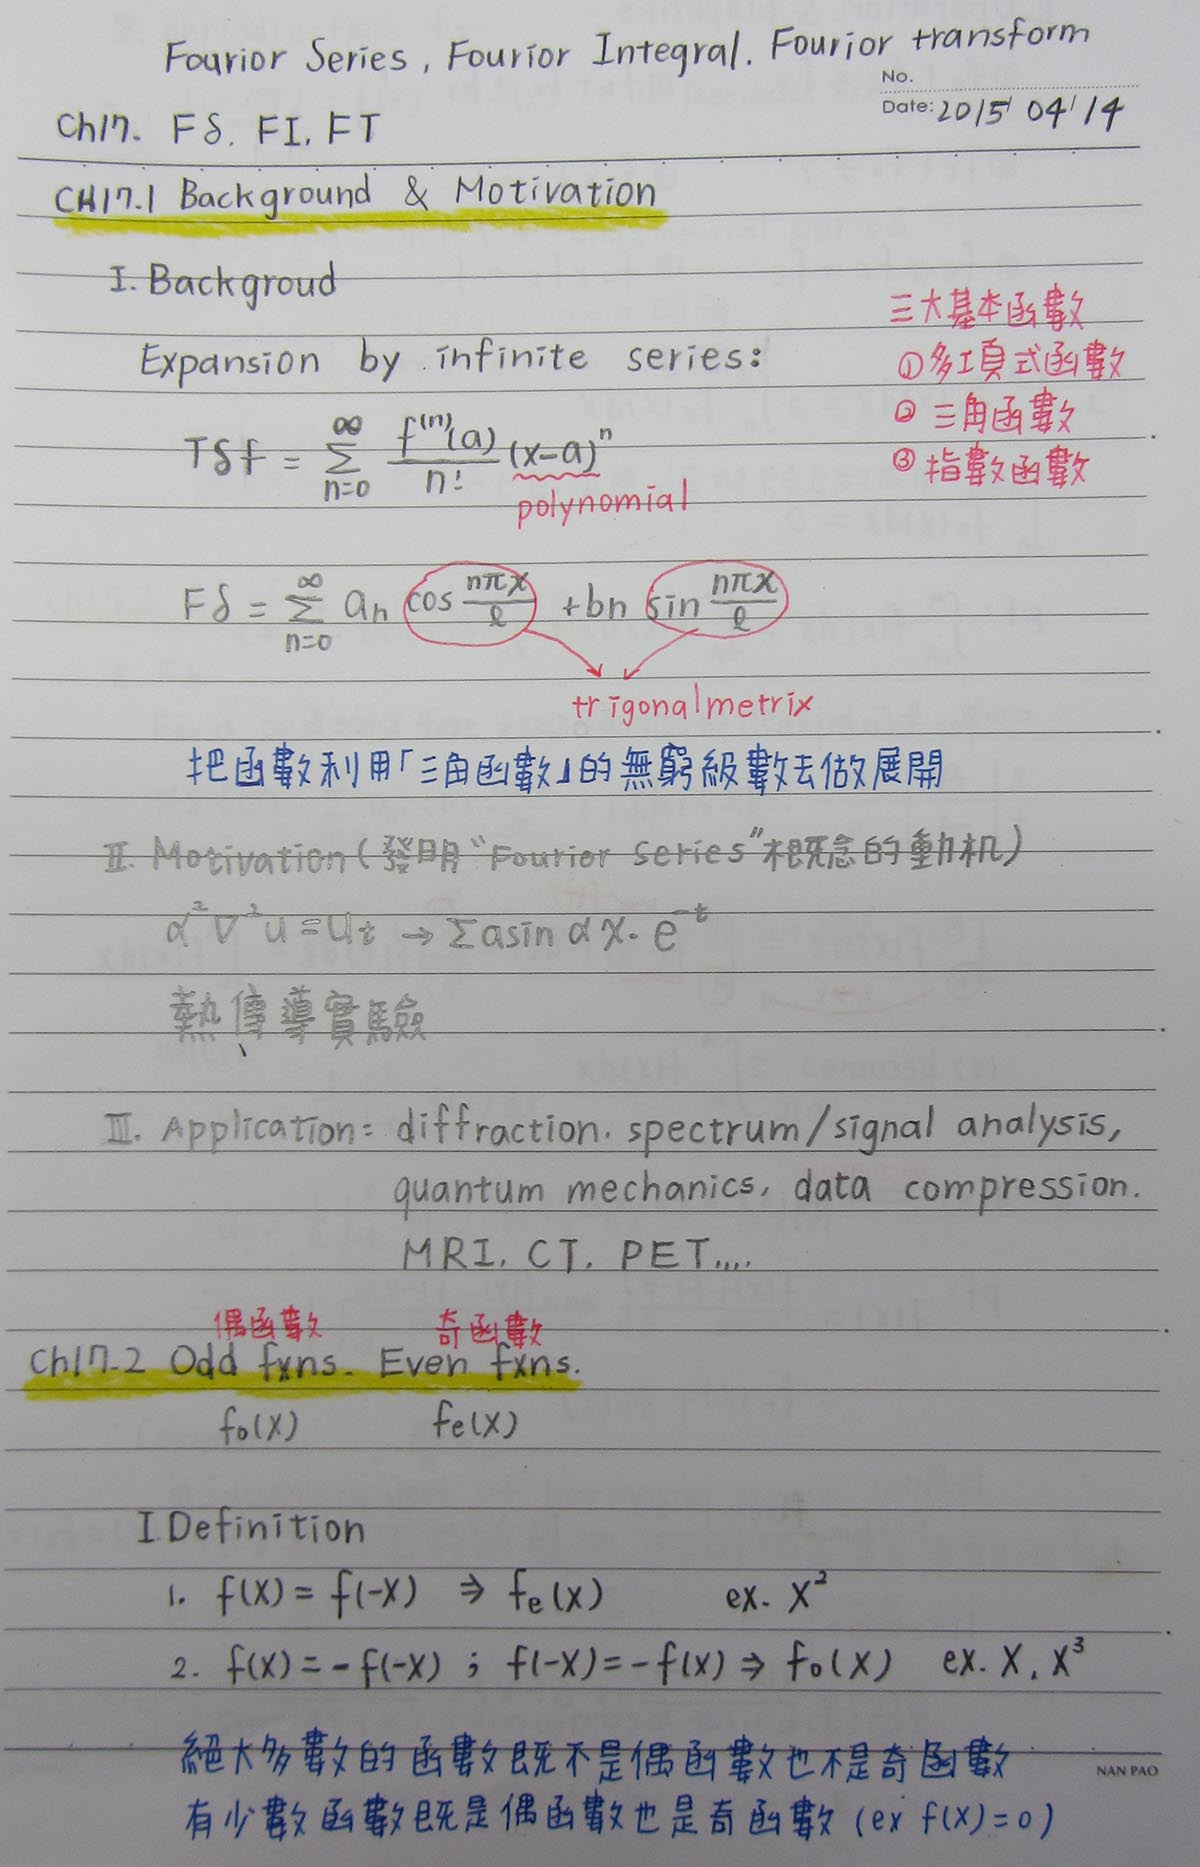 Fourior Series, Fourior Integral. Fourior transform
No.
Date: 2015 04 14
Ch17. FS. FI. FT
CH17.1 Background & Motivation
I. Backgroud
三大基本函數
Expansion by infinite series:
①多項式函數
②三角函數
TSf = ∑_{n=0}^{∞} f^{(n)}(a)/n! (x-a)^n
③指數函數
polynomial
FS = ∑_{n=0}^{∞} an cos nπx/ℓ + bn sin nπx/ℓ
trigonalmetrix
把函數利用「三角函數」的無窮級數去做展開
II. Motivation (發明 "Fourior series" 概念的動机)
α²∇²u = ut → ∑ a sin αx · e^{-t}
熱傳導實驗
III. Application: diffraction. spectrum/signal analysis,
quantum mechanics, data compression.
MRI. CT. PET....
偶函數 奇函數
Ch17-2 Odd fxns. Even fxns.
fo(x) fe(x)
I. Definition
1. f(x) = f(-x) ⇒ fe(x) ex. x²
2. f(x) = -f(-x) ; f(-x) = -f(x) ⇒ fo(x) ex. x, x³
絕大多數的函數既不是偶函數也不是奇函數
NAN PAO
有少數函數既是偶函數也是奇函數 (ex f(x)=0)